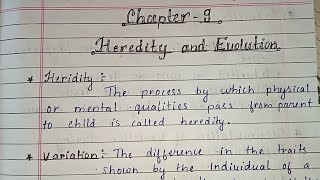 Chapter-9
Heredity and Evolution
* Heridity :-
The process by which physical
or mental qualities pass from parent
to child is called heredity.
* Variation :- The difference in the traits
shown by the individual of a